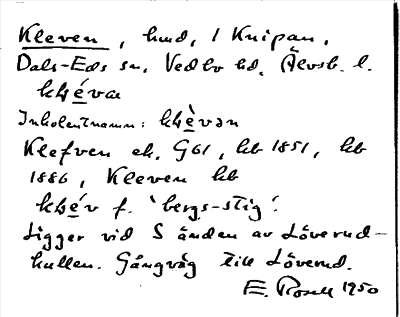 Kleven, hmd, 1 Knipan,
Dals-Eds sn, Vedbo hd, Älvsb. l.
kḷèva
Inkolentnamn: kḷèvən
Klefven ek. G61, hb 1851, hb
1886, Kleven hb
kḷèv f. 'bergs-stig'.
Ligger vid S änden av Löverud-
kullen. Gångväg till Löverud.
E. Rosell 1950